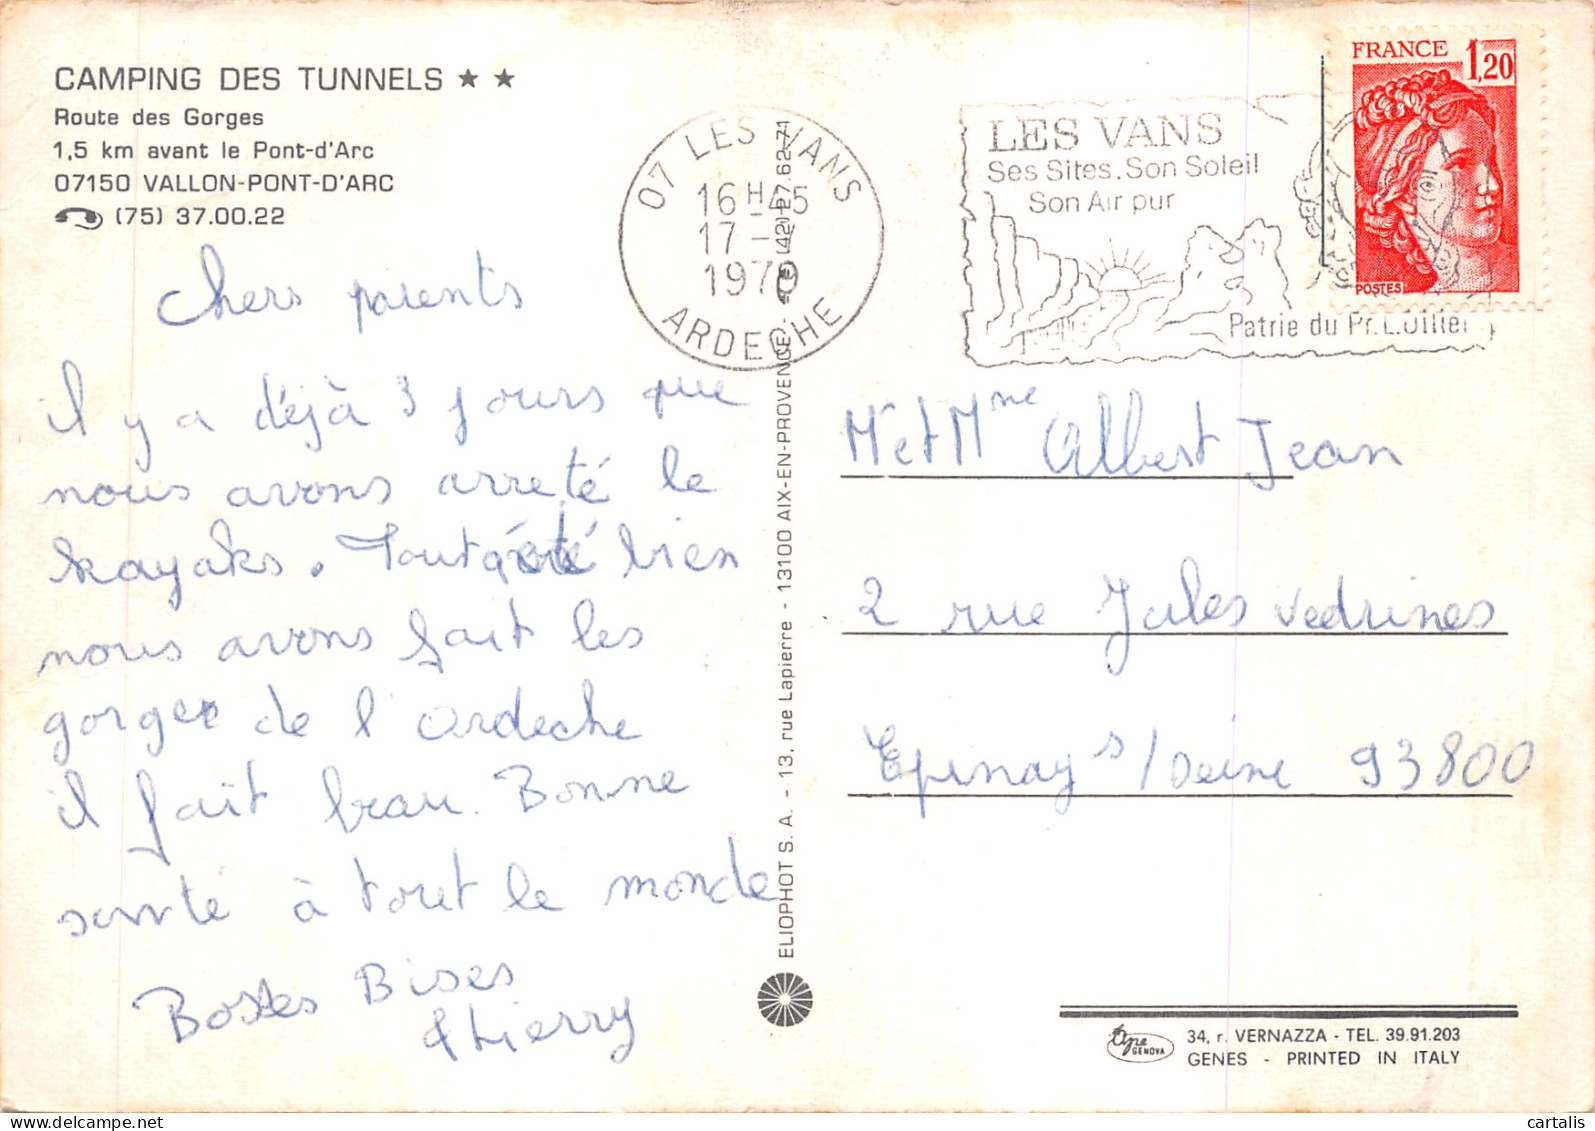 CAMPING DES TUNNELS ★ ★
Route des Gorges
1,5 km avant le Pont-d'Arc
07150 VALLON-PONT-D'ARC
(75) 37.00.22
Chers parents
il y a déjà 3 jours que
nous avons arreté le
kayaks. Tout été bien
nous avons fait les
gorges de l'ardeche
il fait beau. Bonne
santé à tout le monde
Bises
thierry
07 LES VANS
16 H 45
17 -
1979
ARDECHE
ELIOPHOT S. A. - 13, rue Lapierre - 13100 AIX-EN-PROVENCE - (42) 27.62.71
LES VANS
Ses Sites. Son Soleil
Son Air pur
Patrie du Pr. L. Ollier
FRANCE 1,20
POSTES
Mr et Mme Albert Jean
2 rue Jules vedrines
Epinay s/Seine 93800
GENOVA
34, r. VERNAZZA - TEL. 39.91.203
GENES - PRINTED IN ITALY
cartalis
delcampe.net